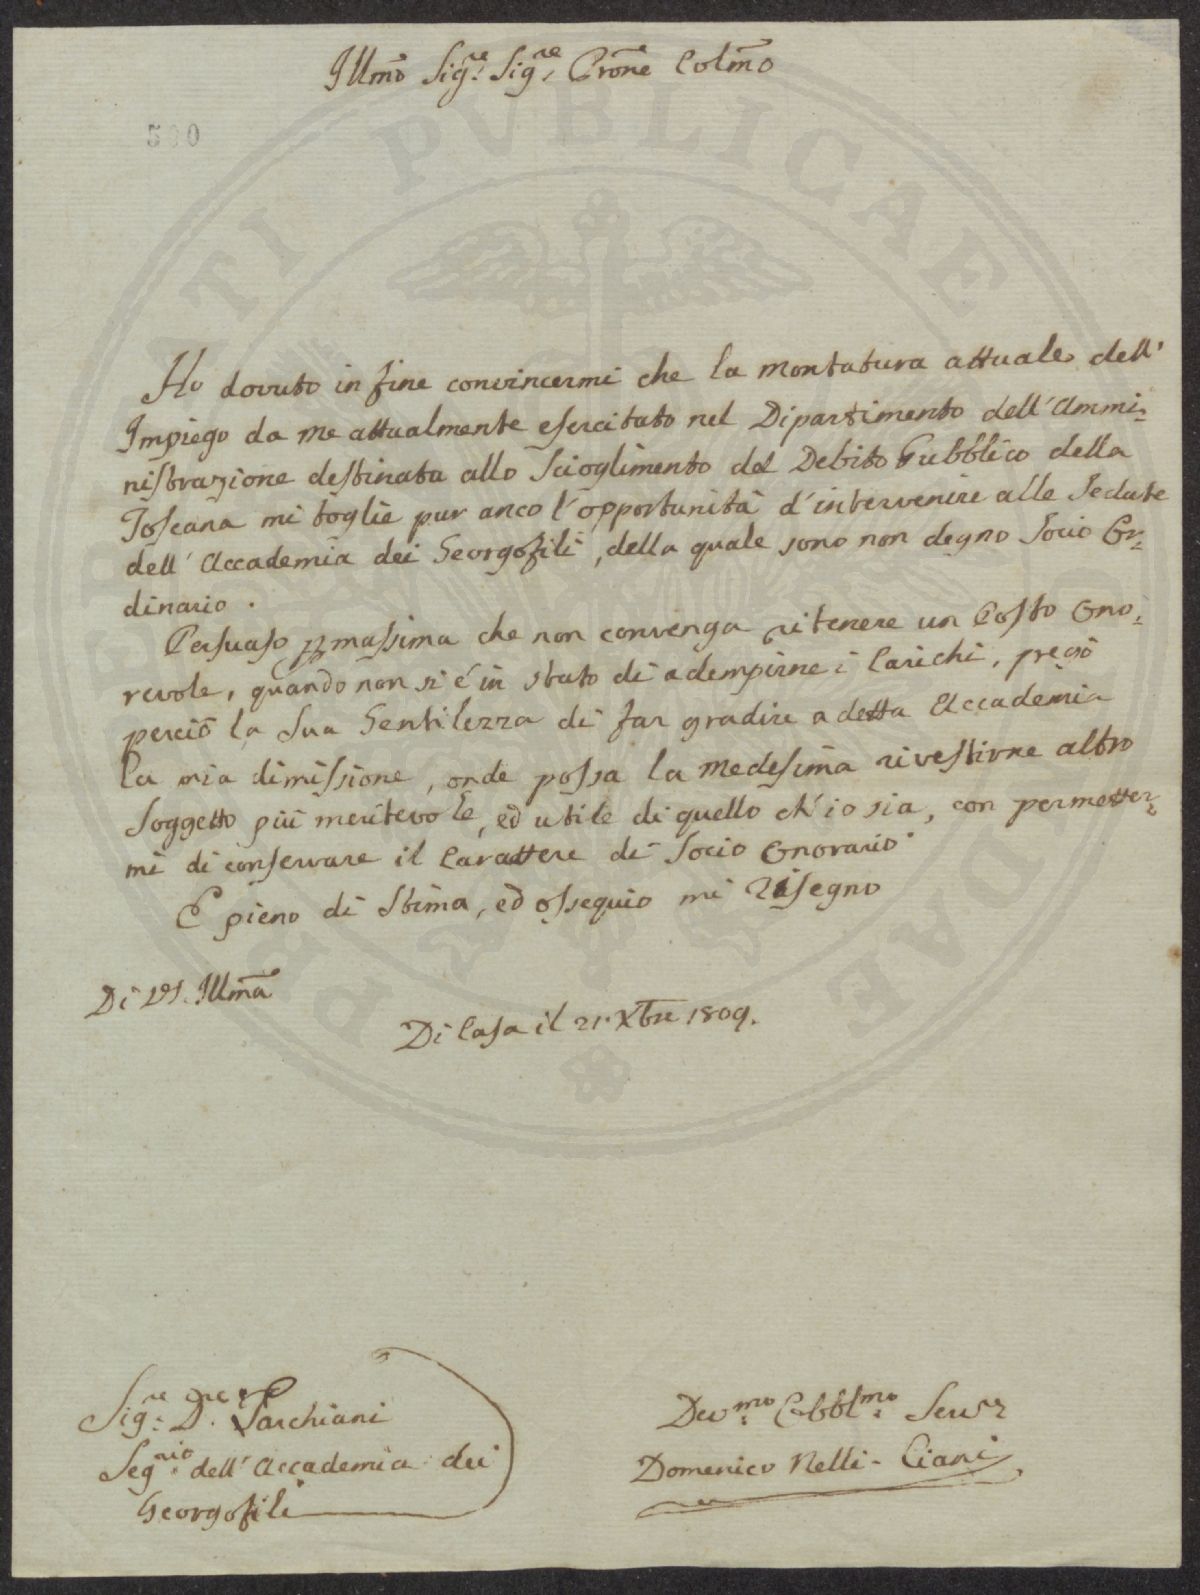 Illmo Sig.re Sig.re Prone Colmo
500
Ho dovuto in fine convincermi che la montatura attuale dell'
Impiego da me attualmente esercitato nel Dipartimento dell'Ammi-
nistrazione destinata allo Scioglimento del Debito Pubblico della
Toscana mi toglie pur anco l'opportunità d'intervenire alle Sedute
dell'Accademia dei Georgofili, della quale sono non degno Socio Or-
dinario.
Persuaso p massima che non convenga ritenere un Posto Ono-
revole, quando non si é in stato di adempirne i Carichi, prego
perciò la Sua Gentilezza di far gradire a detta Accademia
la mia dimissione, onde possa la medesima rivestirne altro
Soggetto più meritevole, ed utile di quello ch'io sia, con permetter-
mi di conservare il Carattere di Socio Onorario.
E pieno di Stima, ed ossequio mi Rasegno
Di VS. Illma
Di Casa il 21. Xbre 1809.
Sig.re D.re Sarchiani
Seg.rio dell'Accademia dei
Georgofili
Dev.mo Obbl.mo Serv.r
Domenico Nelli-Ciani
PUBLICAE